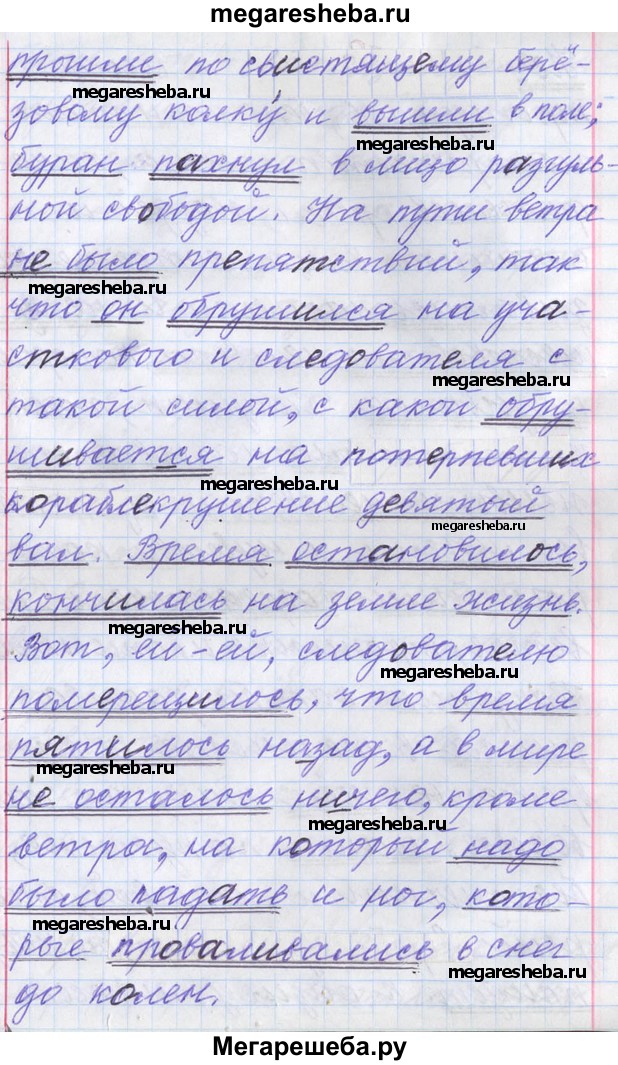 megaresheba.ru
прошли по свистящему берё-
megaresheba.ru
зовому колку́ и вышли в поле;
megaresheba.ru
буран пахнул в лицо разгуль-
ной свободой. На пути ветра
не было препятствий, так
megaresheba.ru
что он обрушился на уча-
сткового и следователя с
megaresheba.ru
такой силой, с какой обру-
шивается на потерпевших
megaresheba.ru
кораблекрушение девятый
megaresheba.ru
вал. Время остановилось,
кончилась на земле жизнь.
megaresheba.ru
Вот, ей-ей, следователю
megaresheba.ru
померещилось, что время
пятилось назад, а в мире
megaresheba.ru
не осталось ничего, кроме
megaresheba.ru
ветра, на который надо
было падать и ног, кото-
megaresheba.ru
рые проваливались в снег
megaresheba.ru
до колен.
Мегарешеба.ру